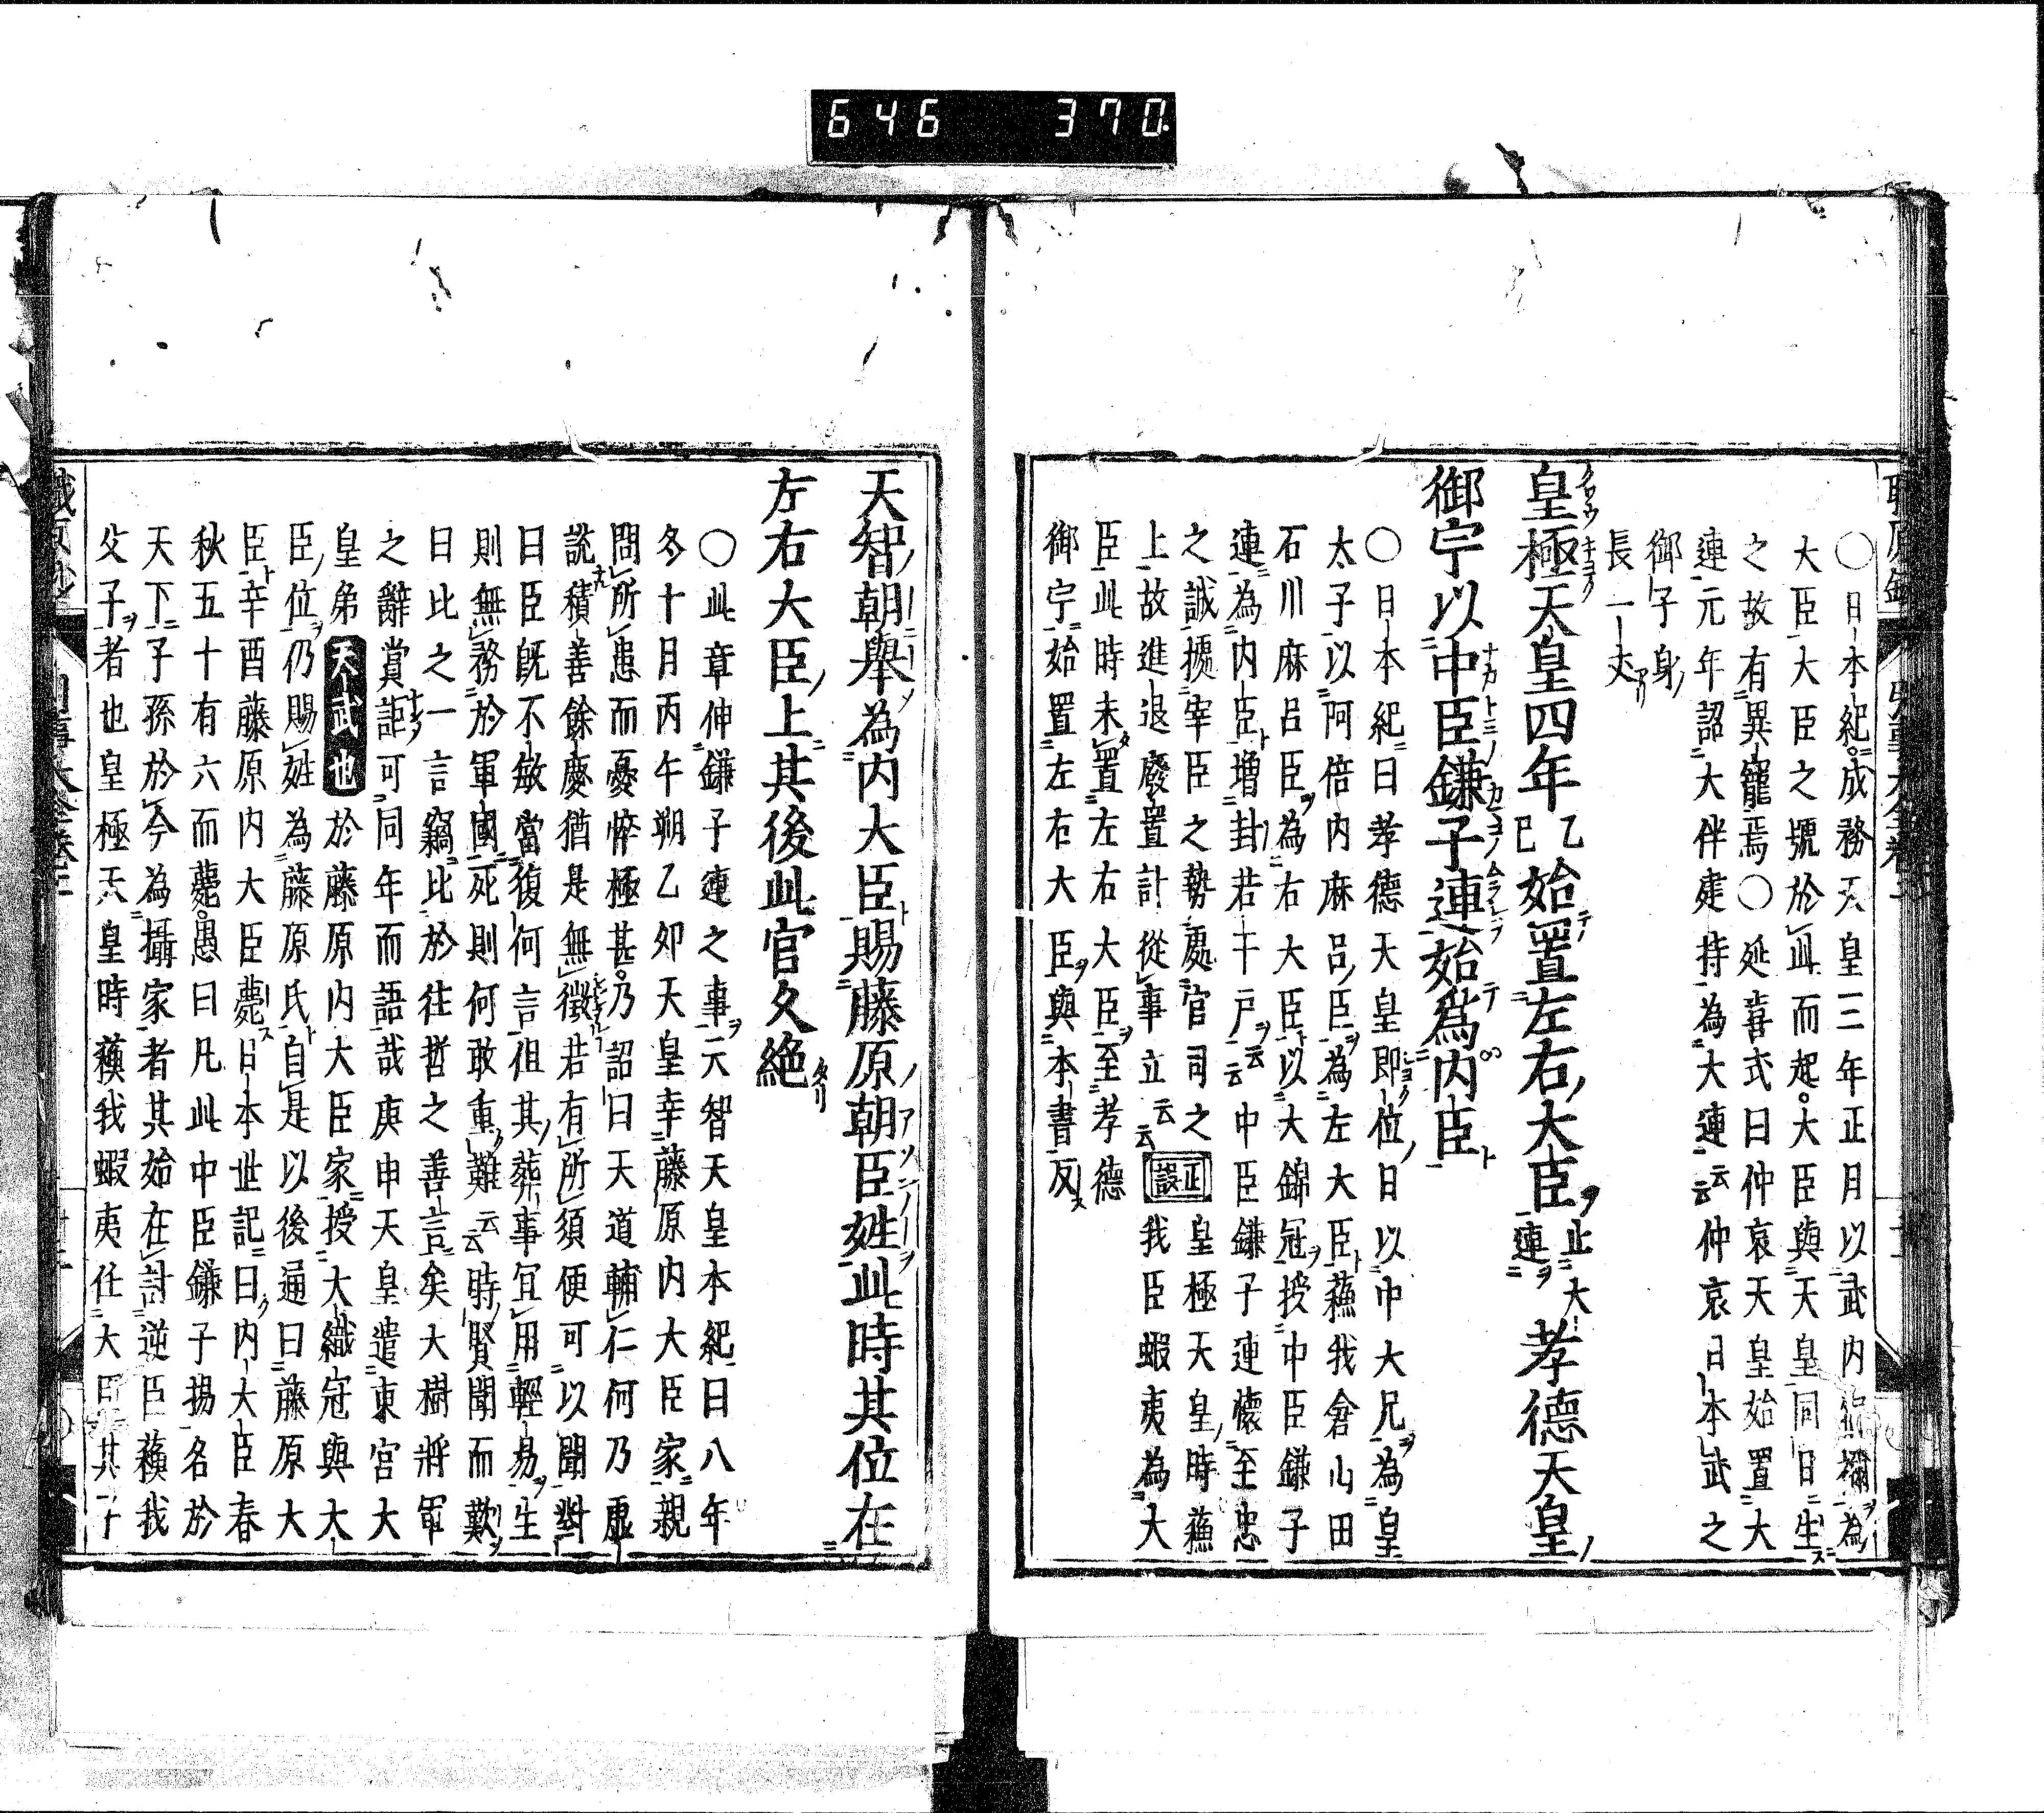 646 370
〇日本紀成務天皇三年正月以武内宿禰為
大臣大臣之號於此而起大臣與天皇同日生
之故有異寵焉〇延喜式曰仲哀天皇始置大
連元年詔大伴建持為大連云云仲哀日本武之
御子身
長一丈
皇極天皇四年乙巳始置左右大臣止大連孝德天皇
御宇以中臣鎌子連始爲内臣
〇日本紀曰孝德天皇即位日以中大兄為皇
太子以阿倍内麻呂臣為左大臣蘓我倉山田
石川麻呂臣為右大臣以大錦冠授中臣鎌子
連為内臣增封若干戸云云中臣鎌子連懷至忠
之誠據宰臣之勢處官司之
上故進退廢置計從事立云云正誤皇極天皇時蘓我臣蝦夷為大
臣此時未置左右大臣至孝德
御宇始置左右大臣與本書反
天智朝舉為内大臣賜藤原朝臣姓此時其位在
左右大臣上其後此官久絶
〇此章伸鎌子連之事天智天皇本紀曰八年
冬十月丙午朔乙卯天皇幸藤原内大臣家親
問所患而憂悴極甚乃詔曰天道輔仁何乃虛
說積善餘慶猶是無徵若有所須便可以聞對
曰臣既不敏當復何言但其葬事宜用輕易生
則無務於軍國死則何敢重難云云時賢聞而歎
曰此之一言竊比於往哲之善言矣大樹將軍
之辭賞詎可同年而語哉庚申天皇遣東宮大
皇弟天武也於藤原内大臣家授大織冠與大
臣位仍賜姓為藤原氏自是以後通曰藤原大
臣辛酉藤原内大臣薨日本世記曰内大臣春
秋五十有六而薨愚曰凡此中臣鎌子揚名於
天下子孫於今為攝家者其始在討逆臣蘓我
父子者也皇極天皇時蘓我蝦夷任大臣其子